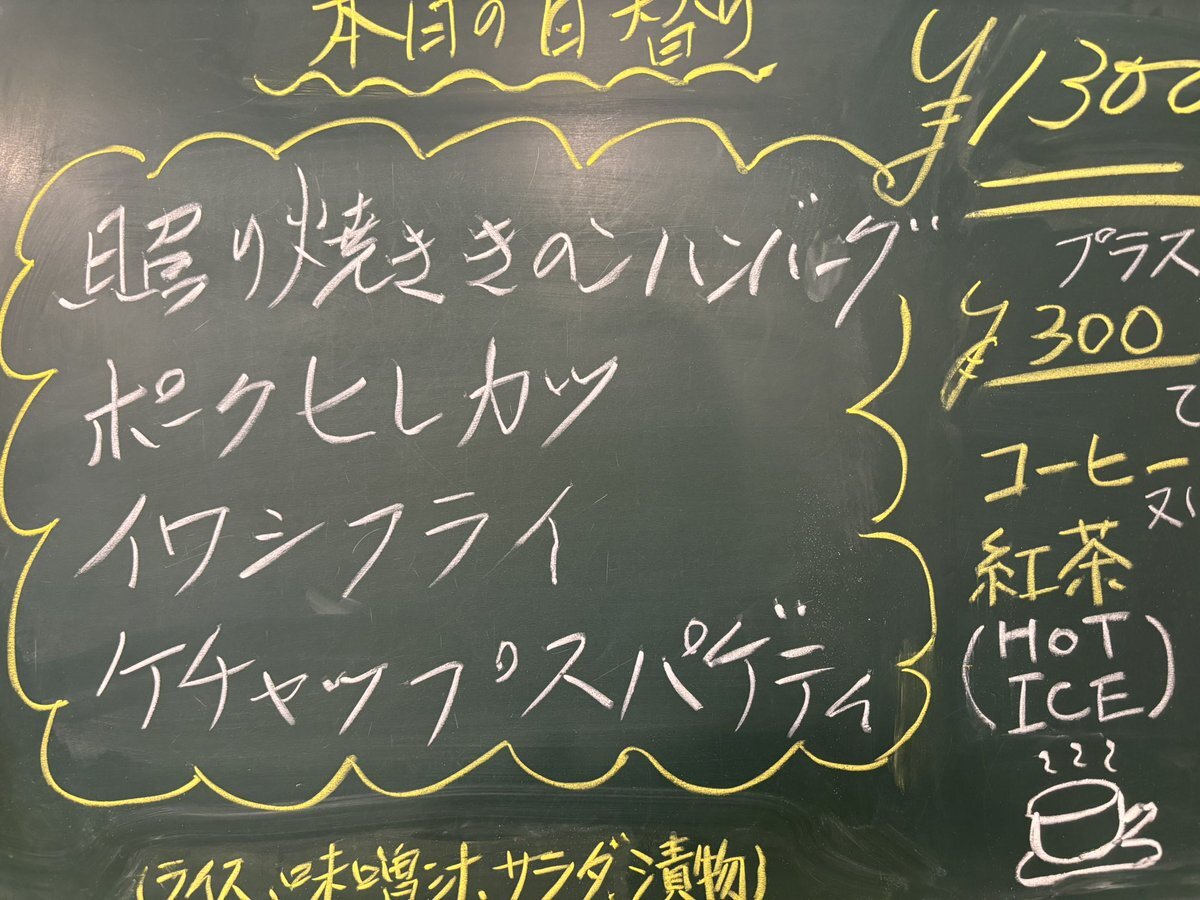 本日の日替り
¥1300
照り焼ききのこハンバーグ
ポークヒレカツ
イワシフライ
ケチャップスパゲティ
(ライス、味噌汁、サラダ、漬物)
プラス
¥300
コーヒー
又
紅茶
(HOT
ICE)